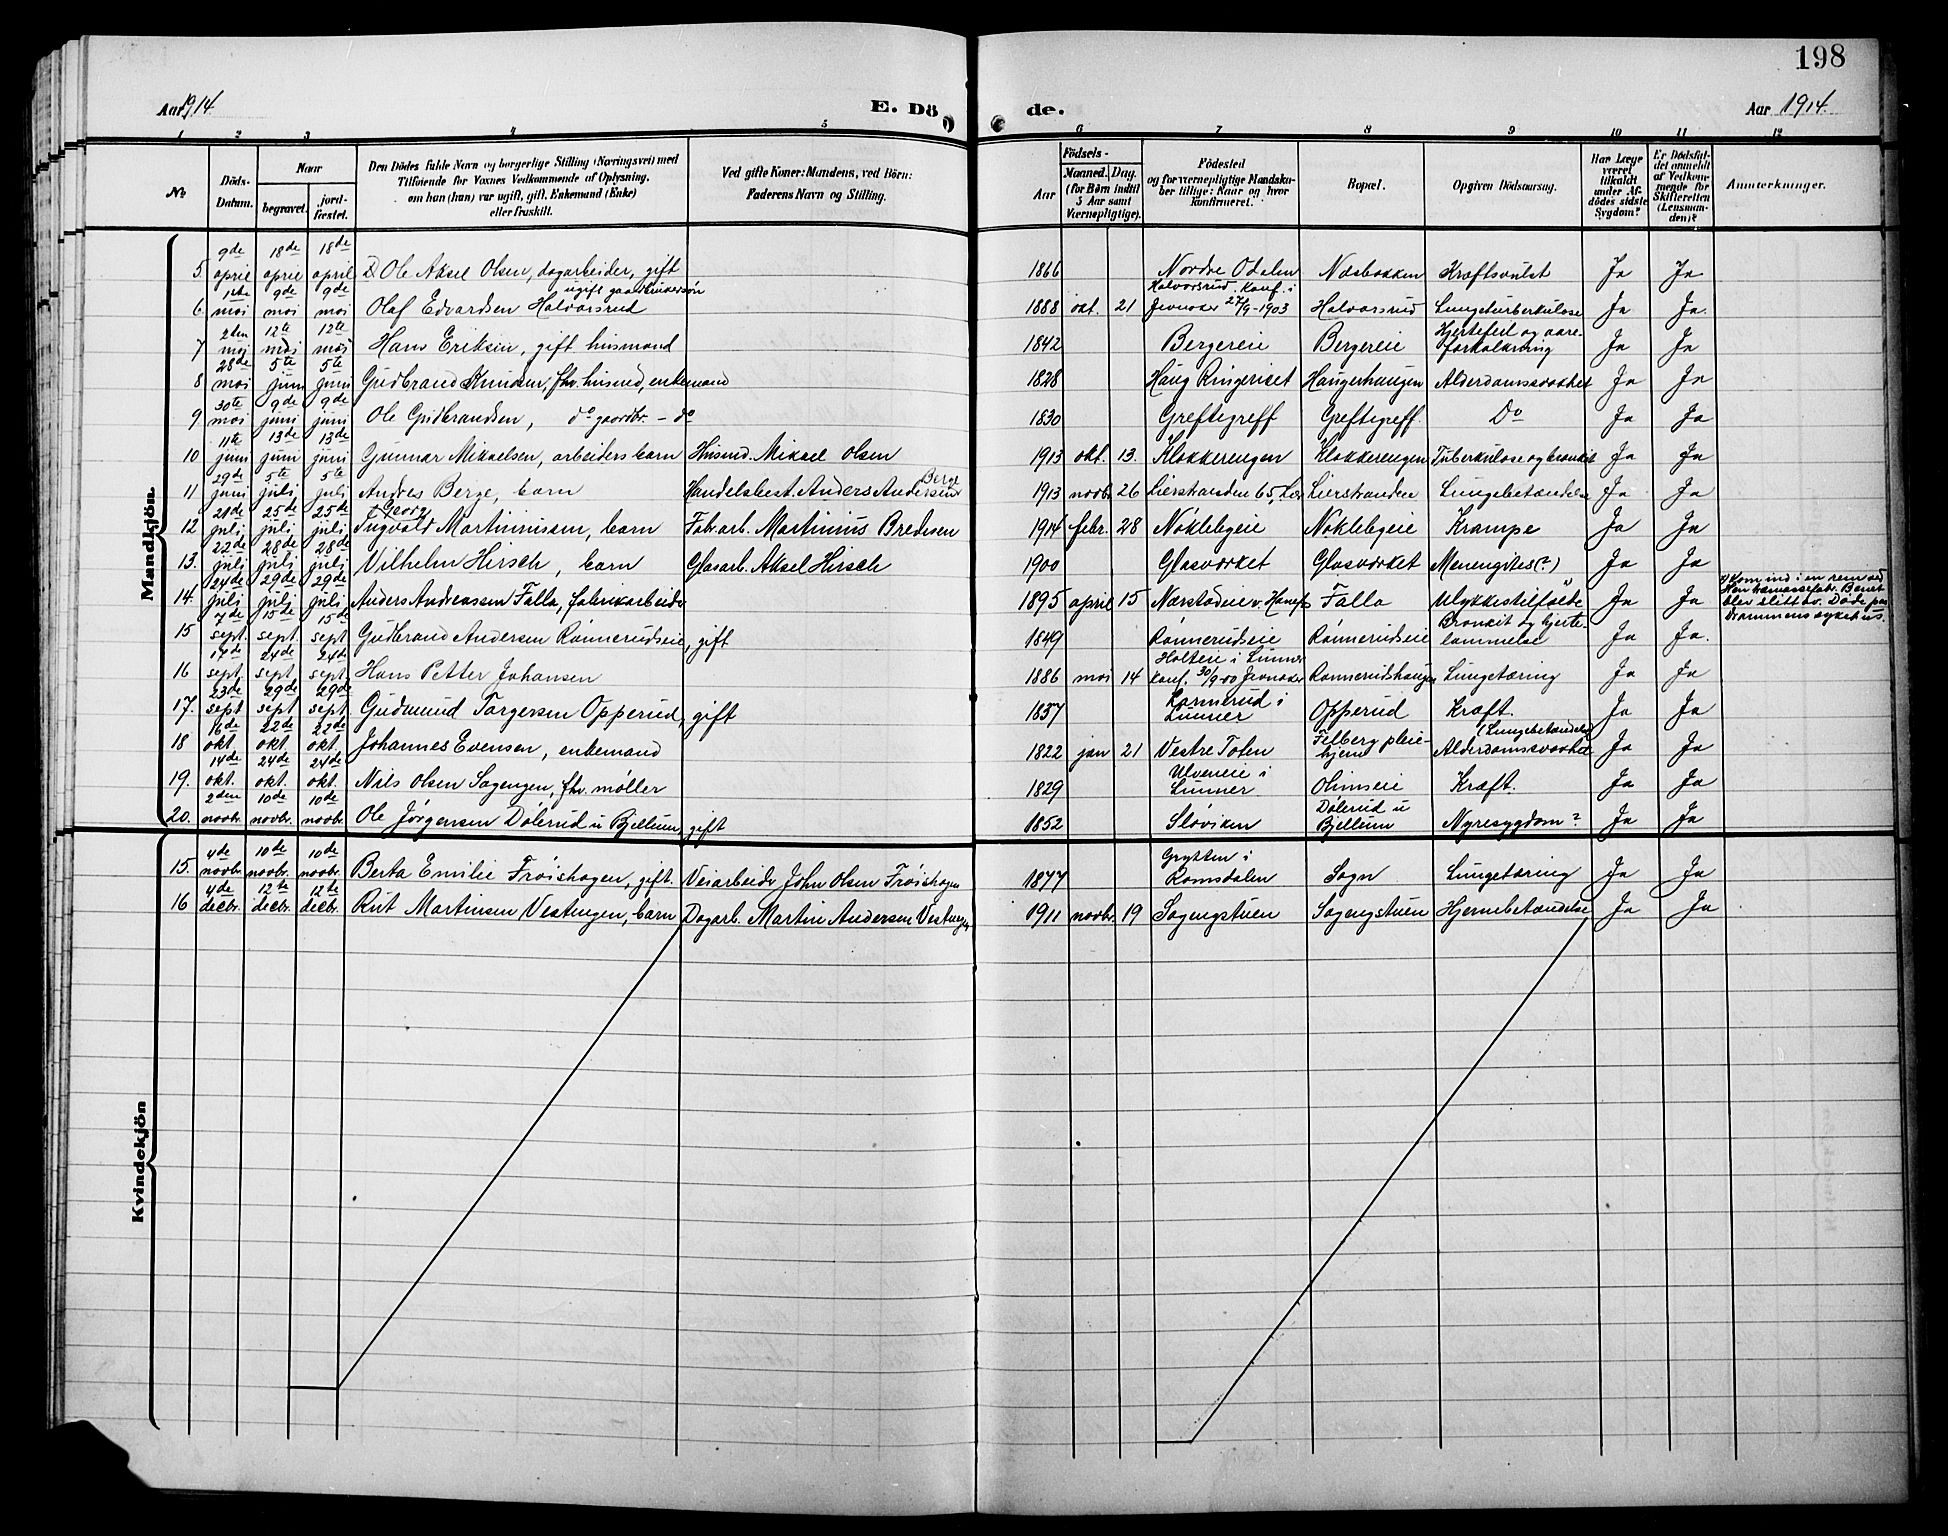 198
Aar 1914. E. Dö de. Aar 1914.
1 2 3 4 5 6 7 8 9 10 11 12
No
Döds-Datum.
Naar
begravet.
jord-fæstet.
Den Dödes fulde Navn og borgerlige Stilling (Næringsvei) med
Tilföiende for Voxnes Vedkommende af Oplysning,
om han (hun) var ugift, gift, Enkemand (Enke)
eller fraskilt.
Ved gifte Koner: Mandens, ved Börn:
Faderens Navn og Stilling.
Födsels-
Aar
Maaned. Dag.
(for Börn indtil
5 Aar samt
Værnepligtige).
Födested
og for vernepligtige Mandsku-
ber tillige: Naar og hvor
konfirmeret.
Bopæl.
Opgiven Dödsaarsag.
Har Læge
været
tilkaldt
under Af-
dödes sidste
Sygdom?
Er Dödsfal-
det anmeldt
af Vedkom-
mende for
Skifteretten
(Lensman-
den)?
Anmærkninger.
Mandkjön.
5 9de april 18de april 18de april Ole Aksel Olsen, dagarbeider, gift 1866 Nordre Odalen Næsbakken Kræftsvulst Ja Ja
6 1ste mai 9de mai 9de mai Olaf Edvardsen Halvorsrud ugift gaardbrukersøn 1888 okt. 21 Halvorsrud. Konf. i Jevnaker 27/9-1903 Halvorsrud Lungetuberkulose Ja Ja.
7 2den mai 12te mai 12te mai Hans Eriksen, gift husmand 1842 Bergereie Bergereie Hjertefeil og aareforkalkning Ja Ja
8 28de mai 5te juni 5te juni Gudbrand Knudsen, fhv. husmd, enkemand 1828 Haug Ringeriket Haugerhaugen Alderdomssvakhet Ja Ja
9 30te mai 9de juni 9de juni Ole Gudbrandsen, do gaardbr. - do 1830 Greftegreff Greftegreff. Do Ja Ja
10 11te juni 13de juni 13de juni Gunnar Mikaelsen, arbeiders barn Husmd. Mikael Olsen 1913 okt. 13. Klokkerengen Klokkerengen Tuberkulose og bronkit Ja Ja
11 29de juni 5te juli 5te juli Andres Berge, barn Handelsbest. Anders Andersen Berge 1913 novbr. 26 Lierstranden 65, Lier Lierstranden Lungebetændelse Ja Ja
12 21de juli 25de juli 25de juli Ingvald Georg Martinussen, barn Fabr.arb. Martinius Bredesen 1914 febr. 28 Nøklebyeie Nøklebyeie Krampe Ja Ja
13. 22de juli 28de juli 28de juli Vilhelm Hirsch, barn Glasarb. Aksel Hirsch 1900 Glasværket Glasværket Menengites(?) Ja Ja
14. 24de juli 29de juli 29de juli Anders Andreassen Falla, fabrikarbeider 1895 april 15 Nærstadeie v. Hønef. Falla Ulykkestilfælde Ja Ja Kom ind i en rem ved Hen træmassefabr. Benet blev slitt av. Døde paa Drammens sykehus.
15 7de sept. 15de sept. 15de sept. Gudbrand Andersen Rønnerudseie, gift 1849 Rønnerudseie Rønnerudseie Bronkit og hjertelammelse Ja Ja.
16 17de sept. 24de sept. 24de sept. Hans Petter Johansen 1886 mai 14 Holteie i Lunner Konf. 30/9 00 Jevnaker Rønnerudshaugen Lungetæring Ja Ja
17. 23de sept 29de sept 29de sept. Gudmund Torgersen Opperud, gift 1837 Lunner Opperud Kræft. Ja Ja
18 16de okt. 22de okt. 22de okt. Johannes Evensen, enkemand 1822 jan 21 Vestre Toten Felberg pleiehjem Alderdomssvakhet (Lungebetændelse) Ja Ja
19. 14de okt. 24de okt. 24de okt. Nils Olsen Sagengen, fhv. møller 1829 Ulveneie i Lunner Olimseie Kræft. Ja Ja
20. 2den novbr. 10de novbr. 10de novbr. Ole Jørgensen Dølerud u Bjellum, gift 1852 Sløviken Dølerud u Bjellum Nyresygdom? Ja Ja
Kvindekjön
15. 4de novbr. 10de novbr. 10de novbr. Berta Emilie Frøishagen, gift. Veiarbeider John Olsen Frøishagen 1877 Grytten i Romsdalen Sogn Lungetæring Ja Ja
16 4de decbr. 12te decbr. 12te decbr. Rut Martinsen Vestengen, barn Dagarb. Martin Andersen Vestengen 1911 novbr. 19 Sagengstuen Sagengstuen Hjernebetændelse Ja Ja